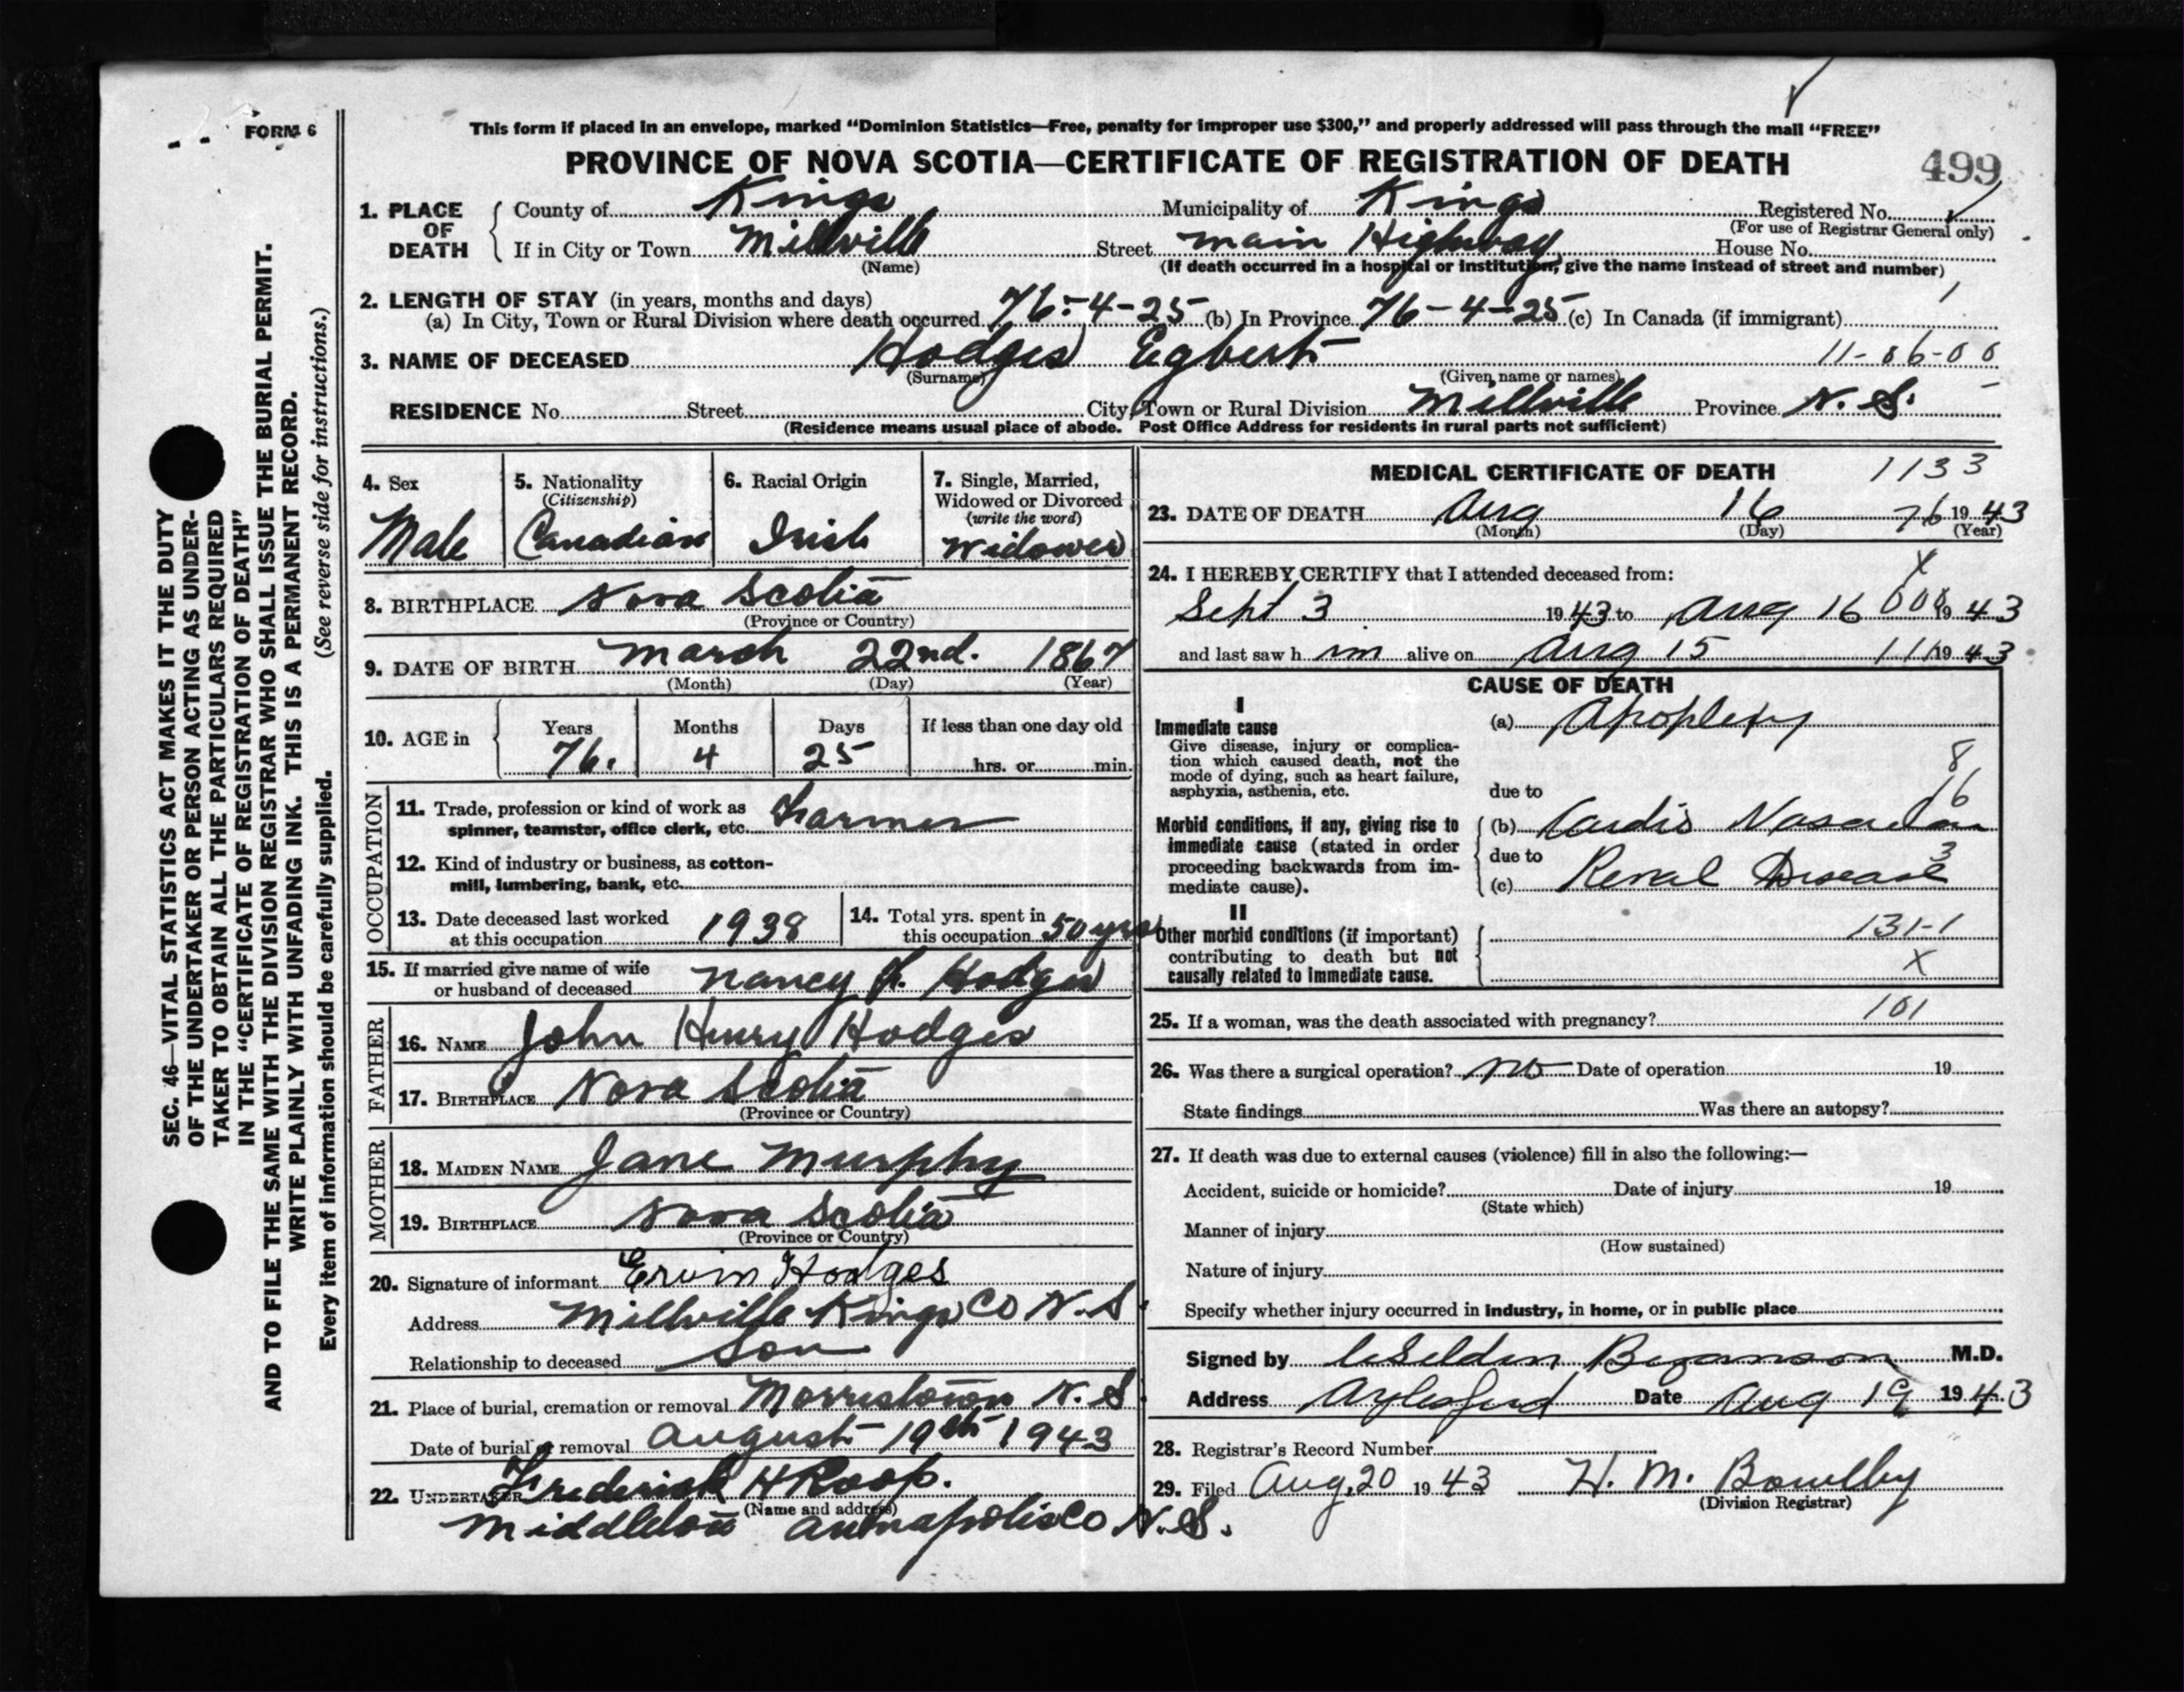 FORM 6
This form if placed in an envelope, marked "Dominion Statistics—Free, penalty for improper use $300," and properly addressed will pass through the mail "FREE"
PROVINCE OF NOVA SCOTIA—CERTIFICATE OF REGISTRATION OF DEATH
499
SEC. 46—VITAL STATISTICS ACT MAKES IT THE DUTY
OF THE UNDERTAKER OR PERSON ACTING AS UNDER-
TAKER TO OBTAIN ALL THE PARTICULARS REQUIRED
IN THE "CERTIFICATE OF REGISTRATION OF DEATH"
AND TO FILE THE SAME WITH THE DIVISION REGISTRAR WHO SHALL ISSUE THE BURIAL PERMIT.
WRITE PLAINLY WITH UNFADING INK. THIS IS A PERMANENT RECORD.
Every item of information should be carefully supplied. (See reverse side for instructions.)
1. PLACE OF DEATH County of Kings Municipality of Kings Registered No.
(For use of Registrar General only)
If in City or Town Millville Street Main Highway House No.
(Name) (If death occurred in a hospital or institution, give the name instead of street and number)
2. LENGTH OF STAY (in years, months and days)
(a) In City, Town or Rural Division where death occurred 76-4-25 (b) In Province 76-4-25 (c) In Canada (if immigrant)
3. NAME OF DECEASED Hodges Egbert 11-06-00
(Surname) (Given name or names)
RESIDENCE No. Street City, Town or Rural Division Millville Province N.S.
(Residence means usual place of abode. Post Office Address for residents in rural parts not sufficient)
4. Sex Male
5. Nationality (Citizenship) Canadian
6. Racial Origin Irish
7. Single, Married, Widowed or Divorced (write the word) Widower
8. BIRTHPLACE Nova Scotia
(Province or Country)
9. DATE OF BIRTH March 22nd. 1867
(Month) (Day) (Year)
10. AGE in Years 76. Months 4 Days 25 If less than one day old hrs. or min.
OCCUPATION
11. Trade, profession or kind of work as
spinner, teamster, office clerk, etc. Farmer
12. Kind of industry or business, as cotton-
mill, lumbering, bank, etc.
13. Date deceased last worked
at this occupation 1938
14. Total yrs. spent in
this occupation 50 yrs
15. If married give name of wife
or husband of deceased Nancy Hodges
FATHER
16. NAME John Henry Hodges
17. BIRTHPLACE Nova Scotia
(Province or Country)
MOTHER
18. MAIDEN NAME Jane Murphy
19. BIRTHPLACE Nova Scotia
(Province or Country)
20. Signature of informant Ervin Hodges
Address Millville Kings Co N.S.
Relationship to deceased Son
21. Place of burial, cremation or removal Morristown N.S.
Date of burial or removal August 19th 1943
22. UNDERTAKER Frederick H Roop.
(Name and address)
Middleton Annapolis Co N.S.
MEDICAL CERTIFICATE OF DEATH 1133
23. DATE OF DEATH Aug 16 76 1943
(Month) (Day) (Year)
24. I HEREBY CERTIFY that I attended deceased from: X
Sept 3 1943 to Aug 16 1943
and last saw h im alive on Aug 15 111 1943
CAUSE OF DEATH
I
Immediate cause
Give disease, injury or complica-
tion which caused death, not the
mode of dying, such as heart failure,
asphyxia, asthenia, etc.
(a) Apoplexy
8
16
due to
Morbid conditions, if any, giving rise to
immediate cause (stated in order
proceeding backwards from im-
mediate cause).
(b) Cardio Vascular
due to
3
(c) Renal Disease
II
Other morbid conditions (if important)
contributing to death but not
causally related to immediate cause.
131-1
X
101
25. If a woman, was the death associated with pregnancy?
26. Was there a surgical operation? No Date of operation 19
State findings Was there an autopsy?
27. If death was due to external causes (violence) fill in also the following:—
Accident, suicide or homicide? Date of injury 19
(State which)
Manner of injury
(How sustained)
Nature of injury
Specify whether injury occurred in industry, in home, or in public place
Signed by Selden Bezanson M.D.
Address Aylesford Date Aug 19 1943
28. Registrar's Record Number
29. Filed Aug. 20 1943 H. M. Bowlby
(Division Registrar)